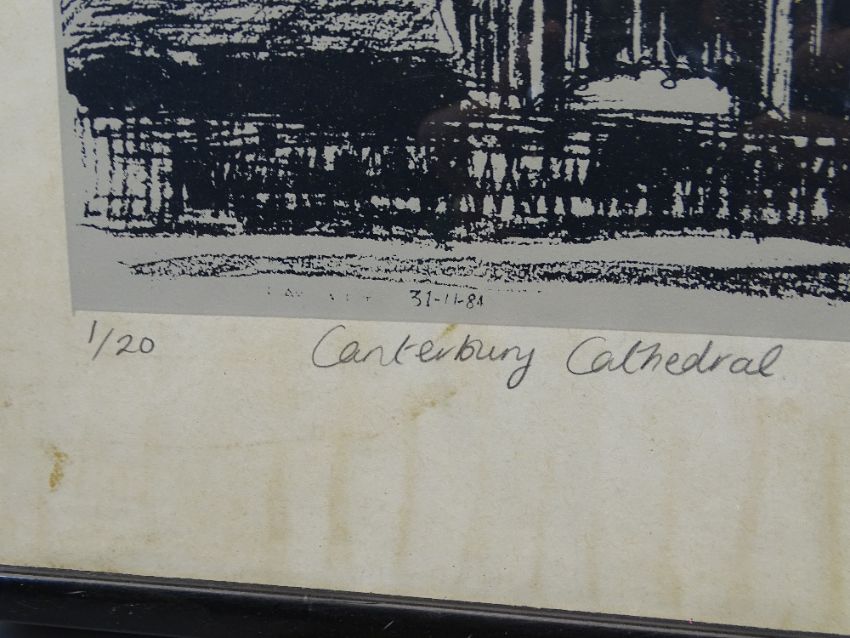 31-11-81
1/20 Canterbury Cathedral